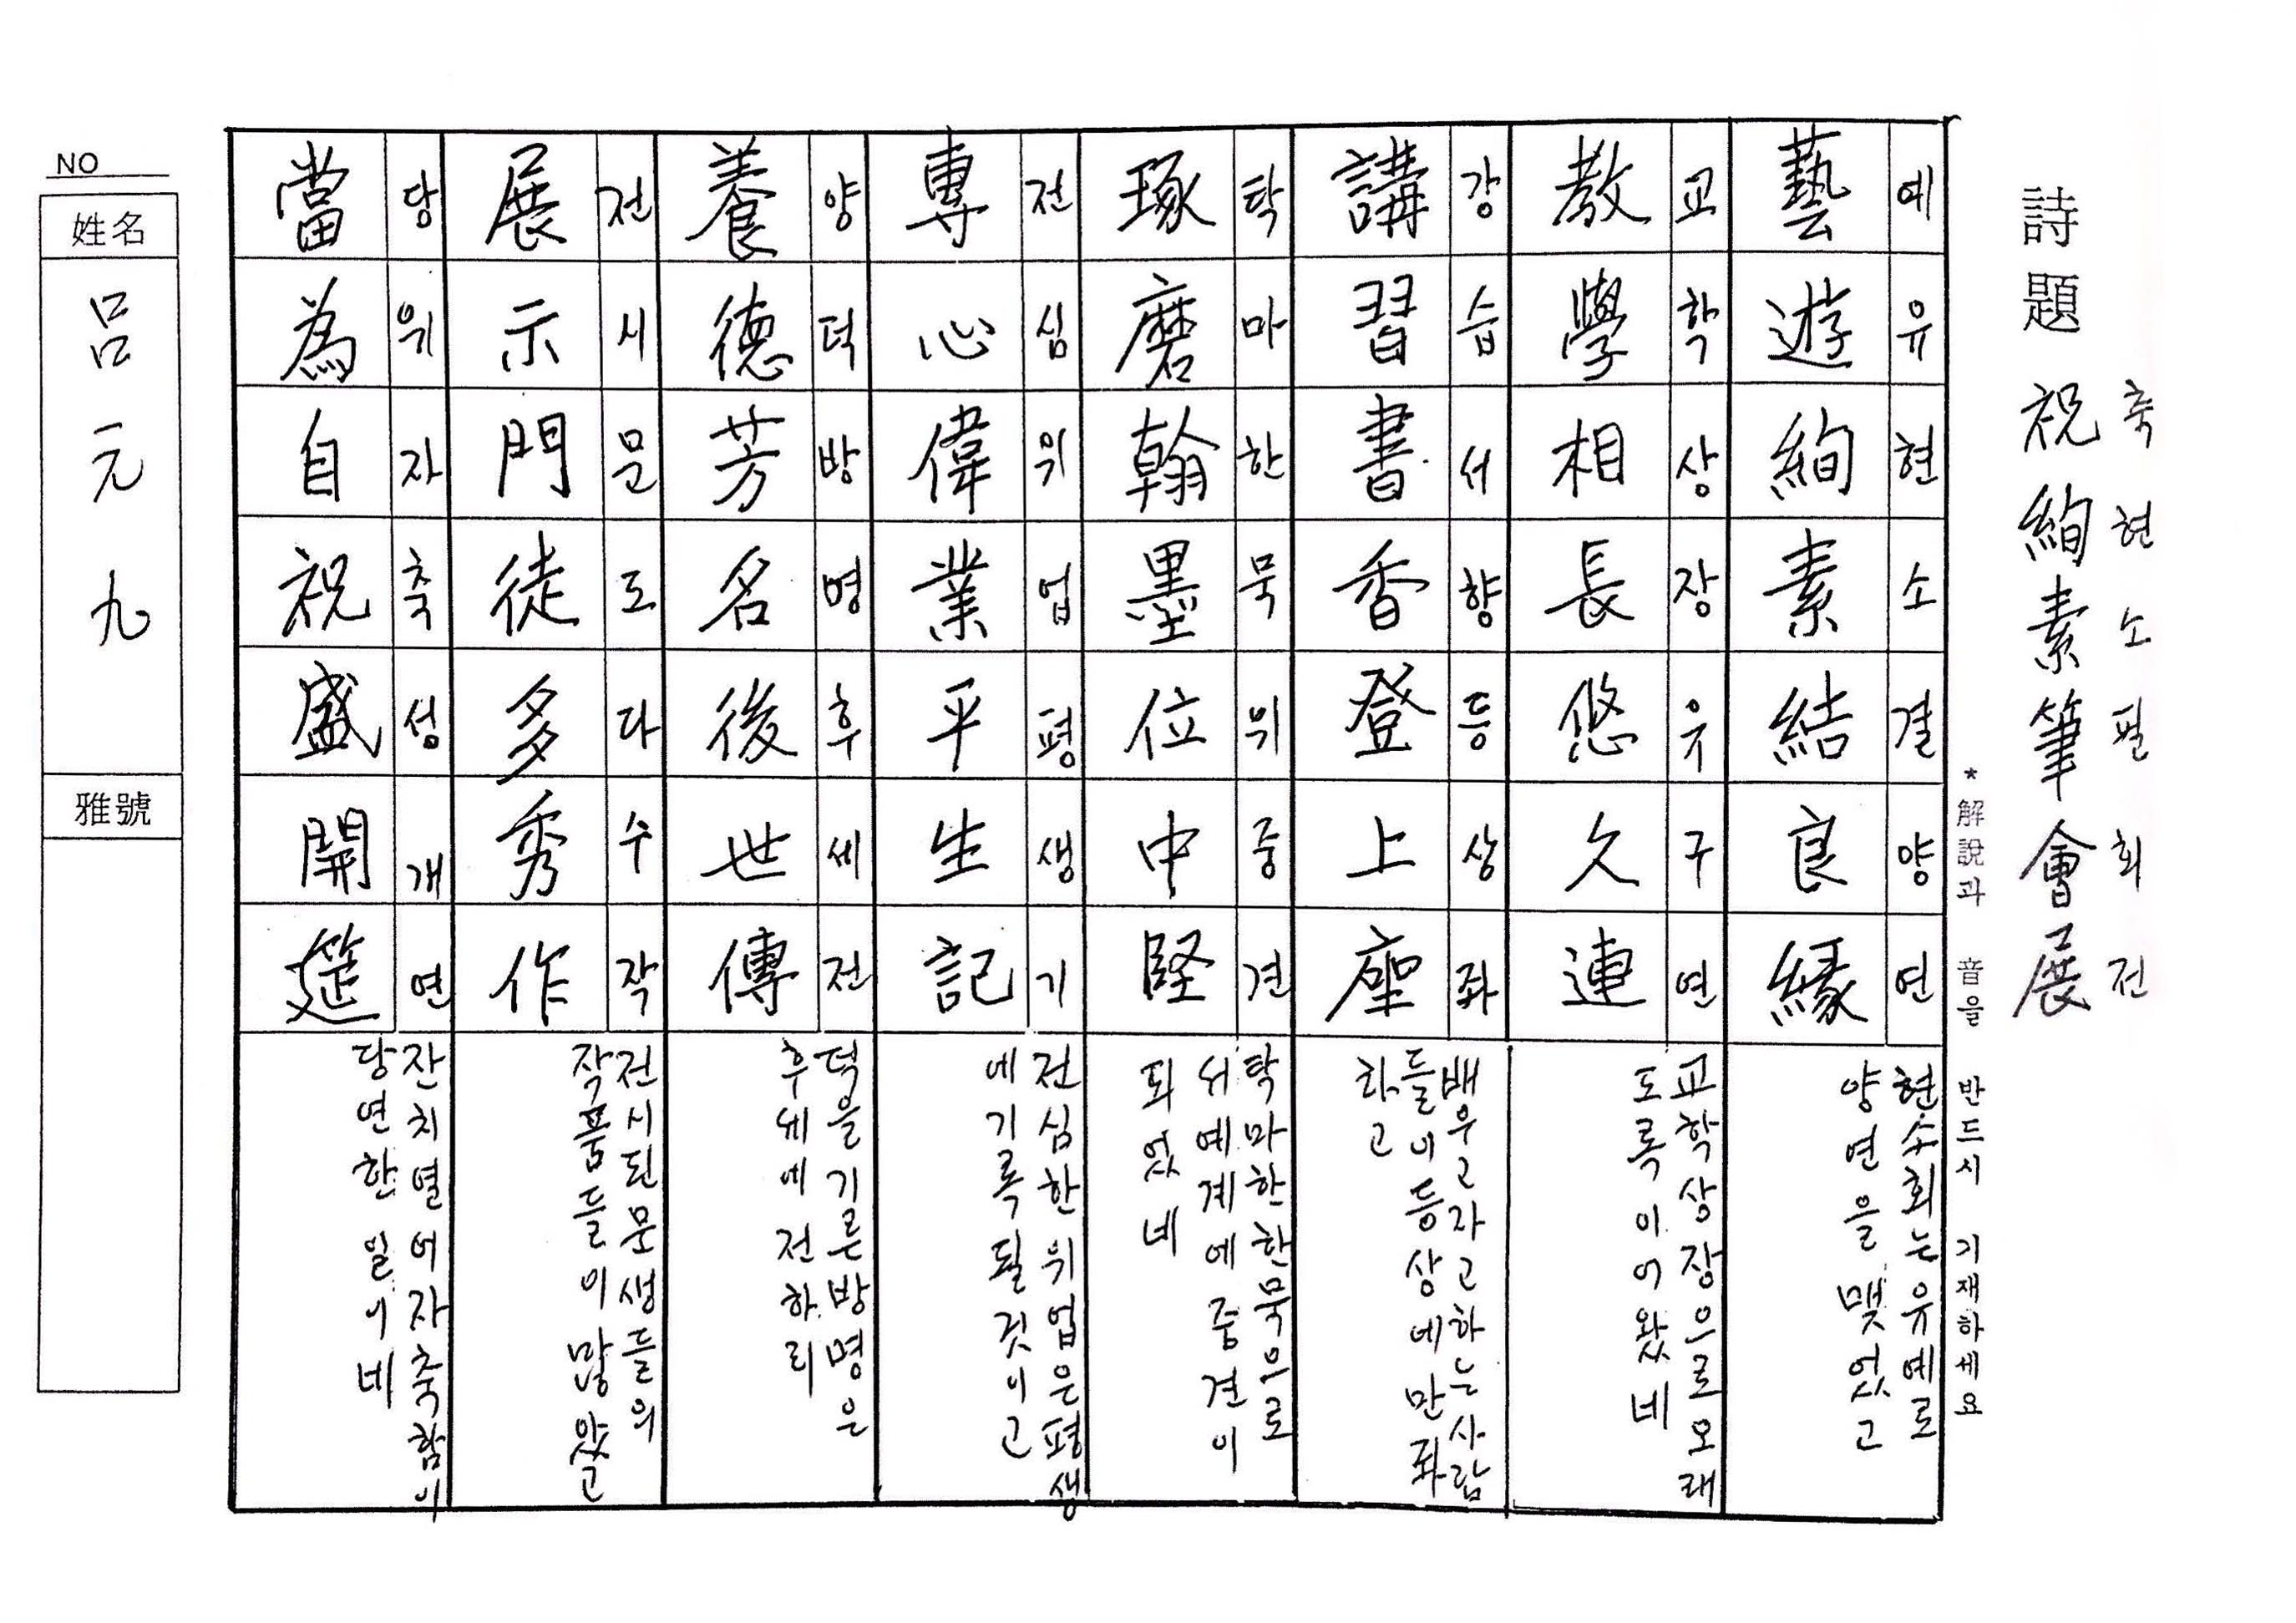 詩題 祝絢素筆會展
축현소필회전
*解說과 音을 반드시 기재하세요
藝遊絢素結良緣
예유현소결양연
현소회는 유예로
양연을 맺었고
教學相長悠久連
교학상장유구연
교학상장으로 오래
도록 이어왔네
講習書香登上座
강습서향등상좌
배우고자 고하는 사람
들이 등상에 만좌
하고
琢磨翰墨位中堅
탁마한묵위중견
탁마한 한묵으로
서예계에 중견이
되었네
專心偉業平生記
전심위업평생기
전심한 위업은 평생
에 기록될 것이고
養德芳名後世傳
양덕방명후세전
덕을 기른 방명은
후세에 전하리
展示門徒多秀作
전시문도다수작
전시된 문생들의
작품들이 많았고
當為自祝盛開筵
당위자축성개연
잔치열어 자축함이
당연한 일이네
NO
姓名
呂元九
雅號